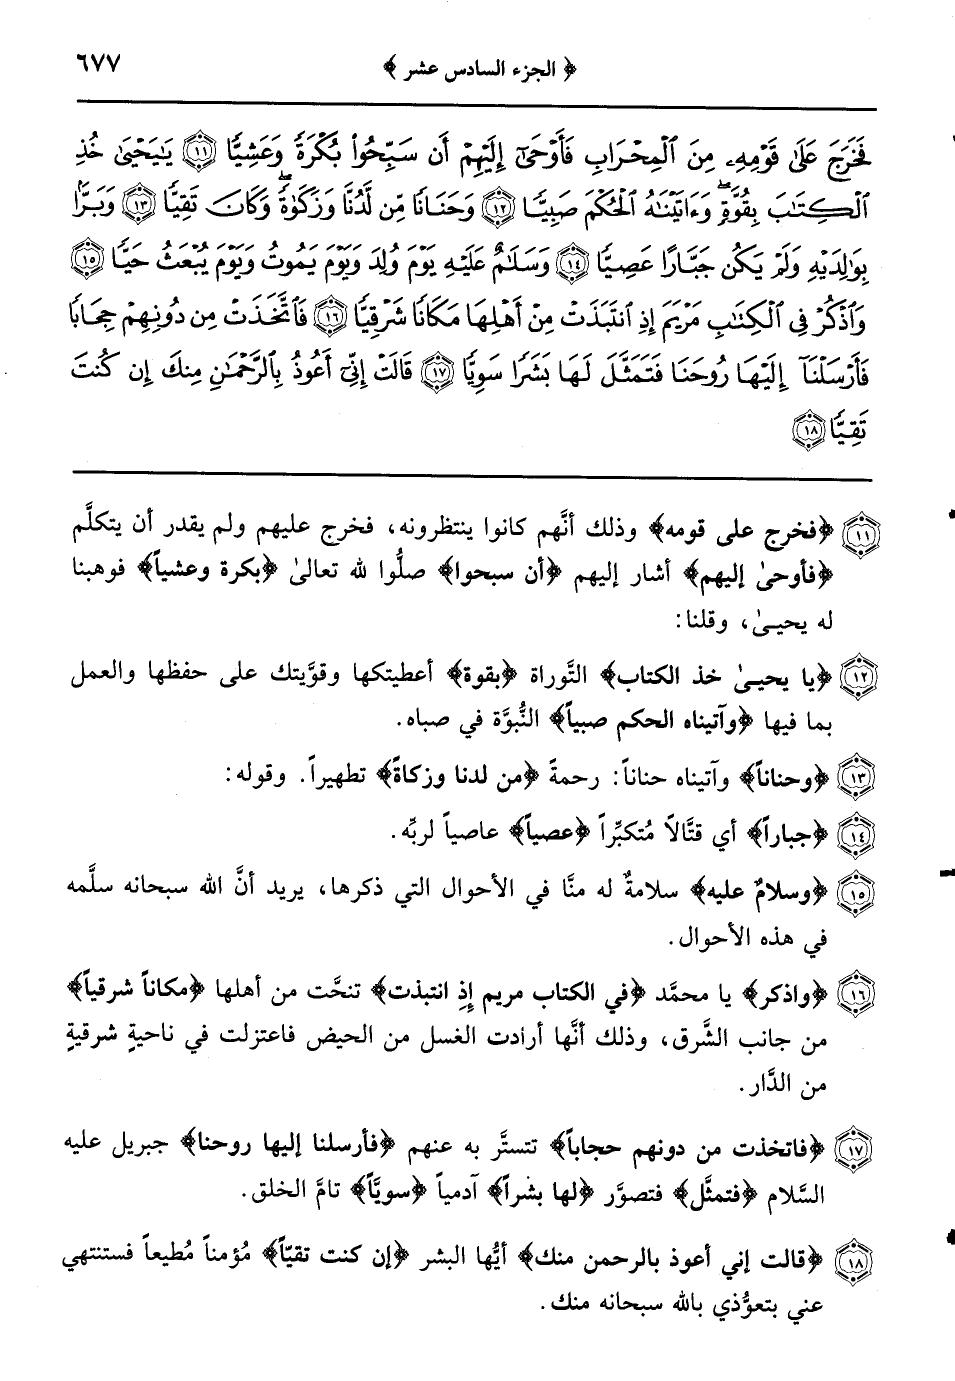 ﴿ الجزء السادس عشر ﴾ ٦٧٧
فَخَرَجَ عَلَىٰ قَوْمِهِۦ مِنَ ٱلْمِحْرَابِ فَأَوْحَىٰٓ إِلَيْهِمْ أَن سَبِّحُوا۟ بُكْرَةً وَعَشِيًّا ﴿١١﴾ يَـٰيَحْيَىٰ خُذِ
ٱلْكِتَـٰبَ بِقُوَّةٍ ۖ وَءَاتَيْنَـٰهُ ٱلْحُكْمَ صَبِيًّا ﴿١٢﴾ وَحَنَانًا مِّن لَّدُنَّا وَزَكَوٰةً ۖ وَكَانَ تَقِيًّا ﴿١٣﴾ وَبَرًّۢا
بِوَٰلِدَيْهِ وَلَمْ يَكُن جَبَّارًا عَصِيًّا ﴿١٤﴾ وَسَلَـٰمٌ عَلَيْهِ يَوْمَ وُلِدَ وَيَوْمَ يَمُوتُ وَيَوْمَ يُبْعَثُ حَيًّا ﴿١٥﴾
وَٱذْكُرْ فِى ٱلْكِتَـٰبِ مَرْيَمَ إِذِ ٱنتَبَذَتْ مِنْ أَهْلِهَا مَكَانًا شَرْقِيًّا ﴿١٦﴾ فَٱتَّخَذَتْ مِن دُونِهِمْ حِجَابًا
فَأَرْسَلْنَآ إِلَيْهَا رُوحَنَا فَتَمَثَّلَ لَهَا بَشَرًا سَوِيًّا ﴿١٧﴾ قَالَتْ إِنِّىٓ أَعُوذُ بِٱلرَّحْمَـٰنِ مِنكَ إِن كُنتَ
تَقِيًّا ﴿١٨﴾
١١ ﴿فخرج على قومه﴾ وذلك أنَّهم كانوا ينتظرونه، فخرج عليهم ولم يقدر أن يتكلَّم
﴿فأوحىٰ إليهم﴾ أشار إليهم ﴿أن سبحوا﴾ صلُّوا لله تعالىٰ ﴿بكرة وعشياً﴾ فوهبنا
له يحيىٰ، وقلنا:
١٢ ﴿يا يحيىٰ خذ الكتاب﴾ التَّوراة ﴿بقوة﴾ أعطيتكها وقوَّيتك على حفظها والعمل
بما فيها ﴿وآتيناه الحكم صبياً﴾ النُّبوَّة في صباه.
١٣ ﴿وحناناً﴾ وآتيناه حناناً: رحمةً ﴿من لدنا وزكاةً﴾ تطهيراً. وقوله:
١٤ ﴿جباراً﴾ أي قتَّالاً مُتكبِّراً ﴿عصياً﴾ عاصياً لربِّه.
١٥ ﴿وسلامٌ عليه﴾ سلامةٌ له منَّا في الأحوال التي ذكرها، يريد أنَّ الله سبحانه سلَّمه
في هذه الأحوال.
١٦ ﴿واذكر﴾ يا محمَّد ﴿في الكتاب مريم إذِ انتبذت﴾ تنحَّت من أهلها ﴿مكاناً شرقياً﴾
من جانب الشَّرق، وذلك أنَّها أرادت الغسل من الحيض فاعتزلت في ناحيةٍ شرقيةٍ
من الدَّار.
١٧ ﴿فاتخذت من دونهم حجاباً﴾ تتستَّر به عنهم ﴿فأرسلنا إليها روحنا﴾ جبريل عليه
السَّلام ﴿فتمثَّل﴾ فتصوَّر ﴿لها بشراً﴾ آدمياً ﴿سويَّاً﴾ تامَّ الخلق.
١٨ ﴿قالت إني أعوذ بالرحمن منك﴾ أيُّها البشر ﴿إن كنت تقيّاً﴾ مُؤمناً مُطيعاً فستنتهي
عني بتعوُّذي بالله سبحانه منك.